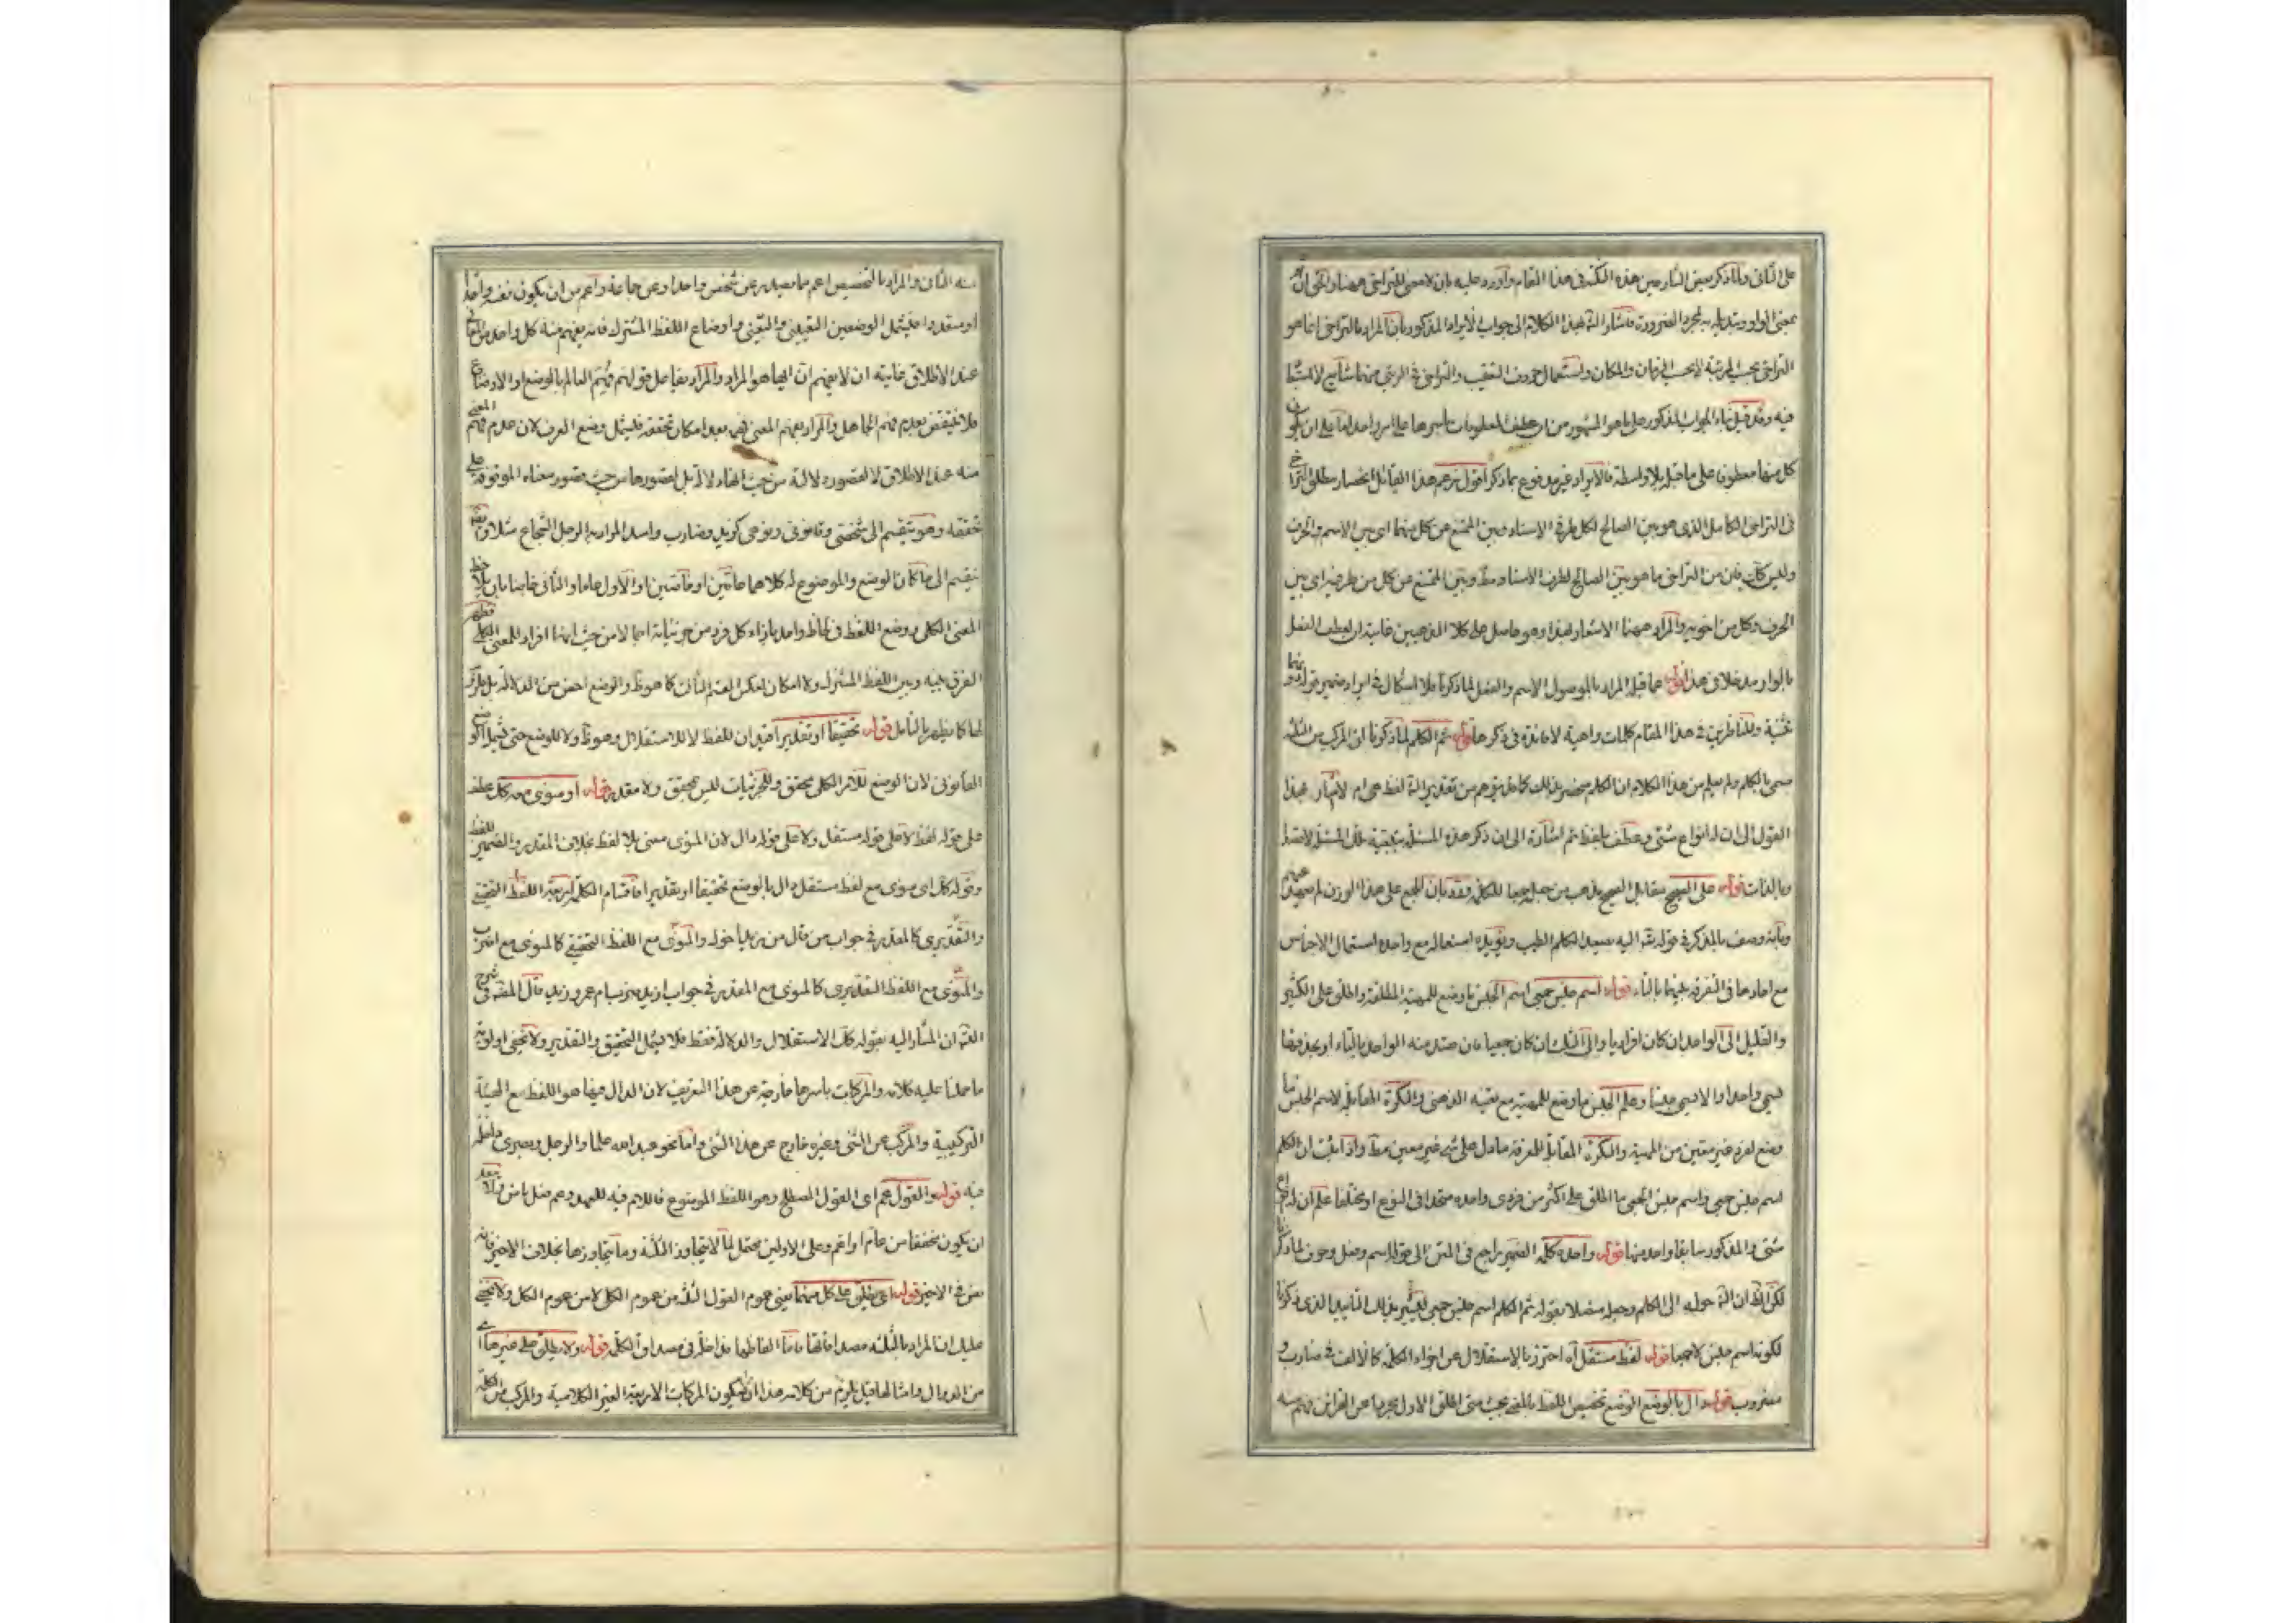 على الثانى ولما ذكر بعض الشارحين هذه النكتة فى هذا المقام واورد عليه بان لا معنى للتراخى ههنا
بمعنى الواو لمجرد الضرورة فاشار الش بهذا الكلام الى جواب الايراد المذكور بان المراد بالتراخى انما هو
التراخى بحسب المرتبة لا بحسب الزمان والمكان واستعمال حروف التعقيب والتراخى فى الرتبى منهما شايع
فيه وقد قيل بناء الجواب المذكور على ما هو المشهور من ان عطف المعلومات باسرها على امر واحد
كل منها معطوف على ما قبله بلا واسطة فالايراد غير مدفوع بما ذكر اقول زعم هذا القائل انحصار مطلق
فى التراخى الكامل الذى هو بين الصالح لكل طرفى الاسناد وبين الممتنع عن كل منهما اى بين الاسم والحرف
وليس كك فان من التراخى ما هو بين الصالح لطرف الاسناد وبين الممتنع عن كل من طرفيه اى بين
الحرف وكل من اخويه والمراد ههنا الاشعار بهذا وهو حاصل على كلا المذهبين غايته ان لعطف الفعل
بالواو قوله فما قبله المراد بالموصول الاسم والفعل لما ذكرنا فلا اشكال فى ايراد ضمير
تثنية وللناظرين فى هذا المقام كلمات واهية لا فائدة فى ذكرها قوله ثم الكلم لما ذكرنا ان المركب من الثلثة
سمى بالكلم ولم يعلم من هذا الكلام ان الكلم منحصر بذلك لفظ عام لاشار بهذا
القول الى ان له انواع شتى وعطف بلفظ ثم اشارة الى ان ذكر هذه المسئلة
وبالذات قوله على الصحيح مقابل الصحيح مذهب من جعل جمعا للكلمة وقد بان الجمع على هذا الوزن لم
وبانه وصف بالمذكر فى قوله تعه اليه يصعد الكلم الطيب ويؤيده استعماله مع واحده استعمال الاجناس
مع احادها فى التفرقة بينهما بالتاء قوله اسم جنس جمعى اسم الجنس ما وضع للمهية المطلقة واطلق على الكثير
والقليل الى الواحد ان كان افراديا والى الثلث ان كان جمعيا فان ميّز منه الواحد بالتاء او بحذفها
سمى واحدا والا سمى جنسا وعلم الجنس ما وضع للمهية مع تعينه الذهنى والنكرة المقابلة لاسم الجنس ما
وضع لفرد غير معين من المهية والنكرة المقابلة للمعرفة ما دل على شىء غير معين مط واذا ثبت ان الكلم
اسم جنس جمعى واسم جنس الجمعى ما اطلق على اكثر من فردى واحده متحدا فى النوع او مختلفا علم ان
شتى والمذكور سابقا واحد منها قوله واحده كلمة الضمير راجع فى المتن الى قوله اسم وفعل وحرف لما ذكرنا
لكن الظ ان الش حوله الى الكلم وجعله متصلا بقوله ثم الكلم اسم جنس جمعى الذى ذكرنا
لكونه اسم جنس لا جمعا قوله لفظ مستقل اه احترز بالاستقلال عن اجزاء الكلمة كالالف فى ضارب و
مضروب قوله دال بالوضع الوضع تخصيص اللفظ بالمعنى بحيث متى اطلق الاول مجردا عن القراين فهم منه
منه الثانى والمراد بالتخصيص اعم مما يصدر عن شخص واحد او عن جماعة واعم من ان يكون نفسه واحدا
او متعددا فليشمل الوضعين التعيينى والتعينى واوضاع اللفظ المشترك فانه يفهم منه كل واحد من المعانى
عند الاطلاق غايته ان لا يفهم ان ايها هو المراد والمراد بفاعل قولهم فهم العالم بالوضع او الاوضاع
فلا ينتقض بعدم فهم الجاهل والمراد بفهم المعنى فهمه بعد امكان تحققه فليشمل وضع الحرف لان عدم فهم المعنى
منه عند الاطلاق لا لقصور دلالته من حيث انها دلالة بل لقصورها من حيث تصور معناه الموقوفة على
تحققه وهو ينقسم الى شخصى وقانونى ونوعى كزيد وضارب واسد المراد به الرجل الشجاع مثلا وايضا
ينقسم الى ما كان الوضع والموضوع له كلاهما عامين او خاصين او الاول عاما والثانى خاصا بان يلاحظ
المعنى الكلى ويوضع اللفظ فى لحاظ واحد بازاء كل فرد من جزئياته اجمالا من حيث انها افراد للمعنى الكلى فظهر
الفرق بينه وبين اللفظ المشترك ولا امكان لعكس القسم الثالث كما هو ظ والوضع اخص من الدلالة
لها كما يظهر بالتامل قوله تحقيقا او تقديرا قيدان للفظ لا للاستقلال وهو ظ ولا للوضع حتى
القانونى لان الوضع للامر الكلى محقق وللجزئيات ليس بمحقق ولا مقدر قوله او منوى معه كك عطف
على قوله لفظ لا على قوله مستقل ولا على قوله دال لان المنوى معنى بلا لفظ بخلاف المقدر والضمير للفظ
وقوله كك اى منوى مع لفظ مستقل دال بالوضع تحقيقا او تقديرا فاقسام الكلمة اربعة اللفظ التحقيقى
والتقديرى كالمقدر فى جواب من قال من والمنوى مع اللفظ التحقيقى كالمنوى مع اضرب
والمنوى مع اللفظ التقديرى كالمنوى مع المقدر فى جواب
الش ان المشار اليه بقوله كك الاستقلال والدلالة فقط فلا يشمل التحقيق والتقدير ولا يخفى اولوية
ما حملنا عليه كلامه والمركبات باسرها خارجة عن هذا التعريف لان الدال فيها هو اللفظ مع الهيئة
التركيبية والمركب عن الشىء وغيره خارج عن هذا الشىء واما نحو عبد الله علما والرجل وبصرى داخل
فيه قوله والقول عم اى القول المصطلح وهو اللفظ الموضوع فاللام فيه للعهد وعم فعل ماض
ان يكون مخففا من عام او اعم وعلى الاولين يحتمل لما لا يتجاوز الثلثة وما يتجاوزها بخلاف الاخير فانه
نص فى الاخير قوله اى يطلق على كل منها يعنى عموم القول الثلثة من عموم الكلى لا من عموم الكل ولا يخفى
عليك ان المراد بالثلثة مصداقاتها فاما الفاظها فداخلة فى مصداق الكلمة قوله ولا يطلق على غيرها
من الدوال وامثالها قيل يلزم من كلامه هذا ان يكون المركبات الاربعة الغير الكلامية والمركب من الكلمة